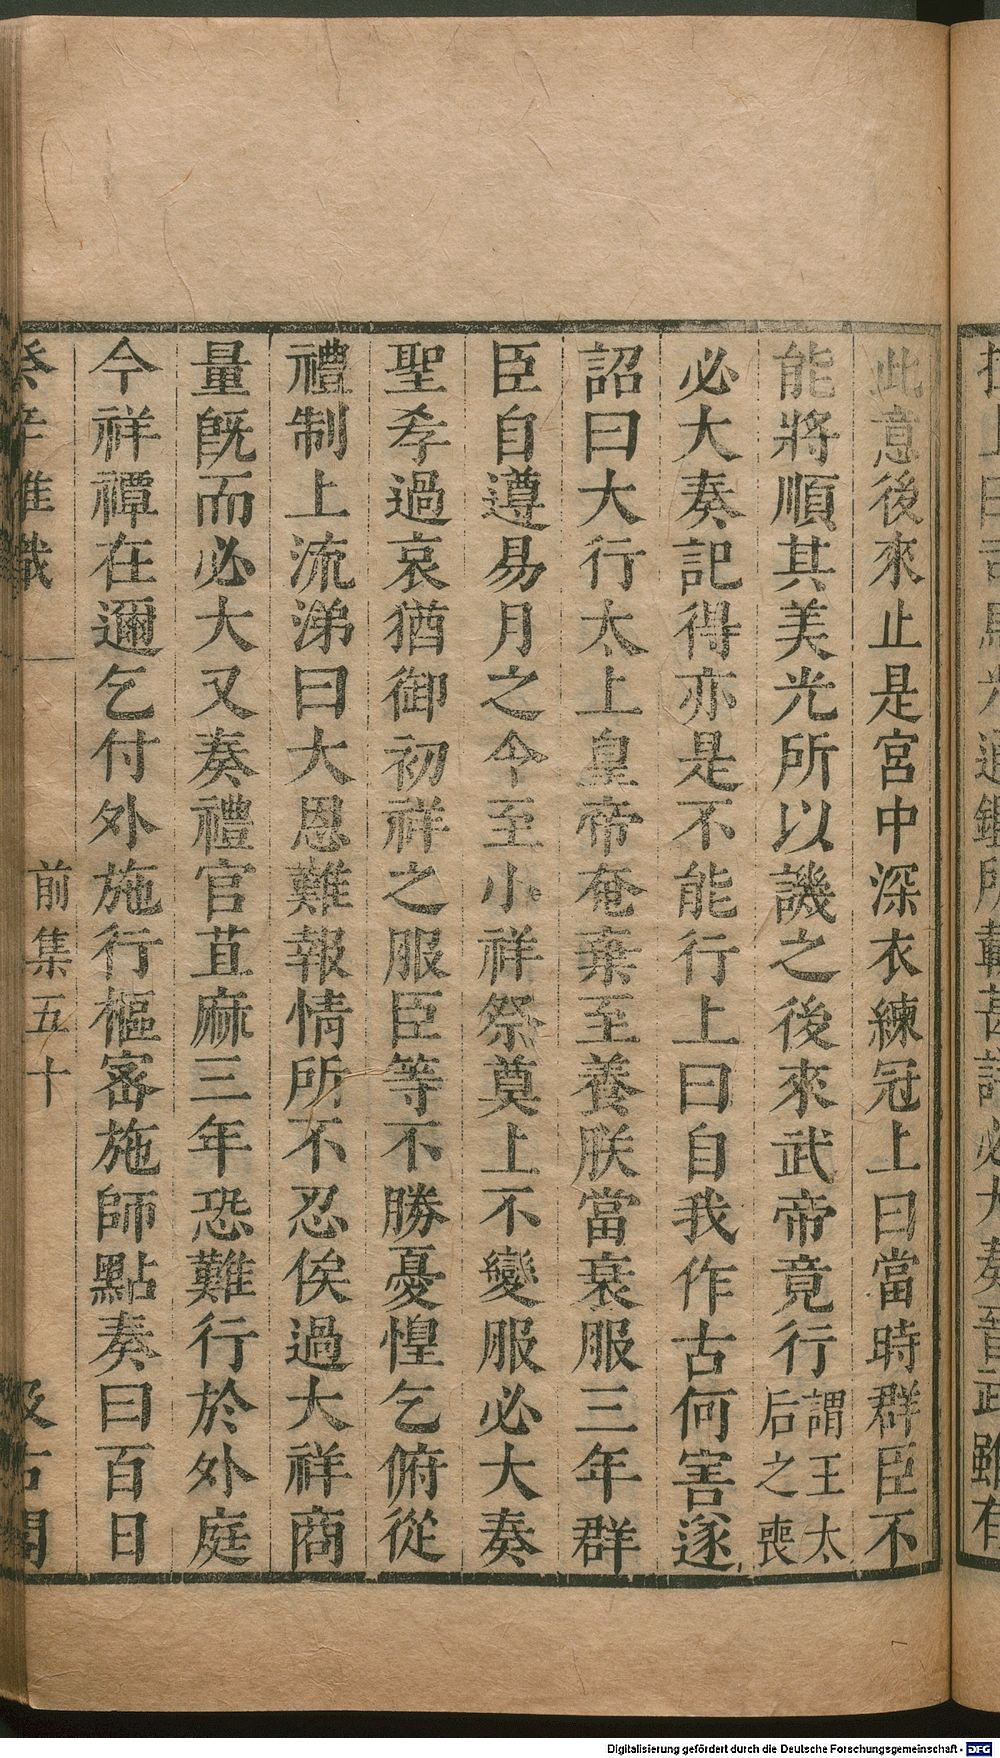 此意後來止是宮中深衣練冠上曰當時群臣不
能將順其美光所以譏之後來武帝竟行謂王太后之喪
必大奏記得亦是不能行上曰自我作古何害遂
詔曰大行太上皇帝奄棄至養朕當衰服三年群
臣自遵易月之令至小祥祭奠上不變服必大奏
聖孝過哀猶御初祥之服臣等不勝憂惶乞俯從
禮制上流涕曰大恩難報情所不忍俟過大祥商
量既而必大又奏禮官苴麻三年恐難行於外庭
今祥禫在邇乞付外施行樞密施師點奏曰百日
癸辛雜識
前集五十
汲古閣
Digitalisierung gefördert durch die Deutsche Forschungsgemeinschaft - DFG